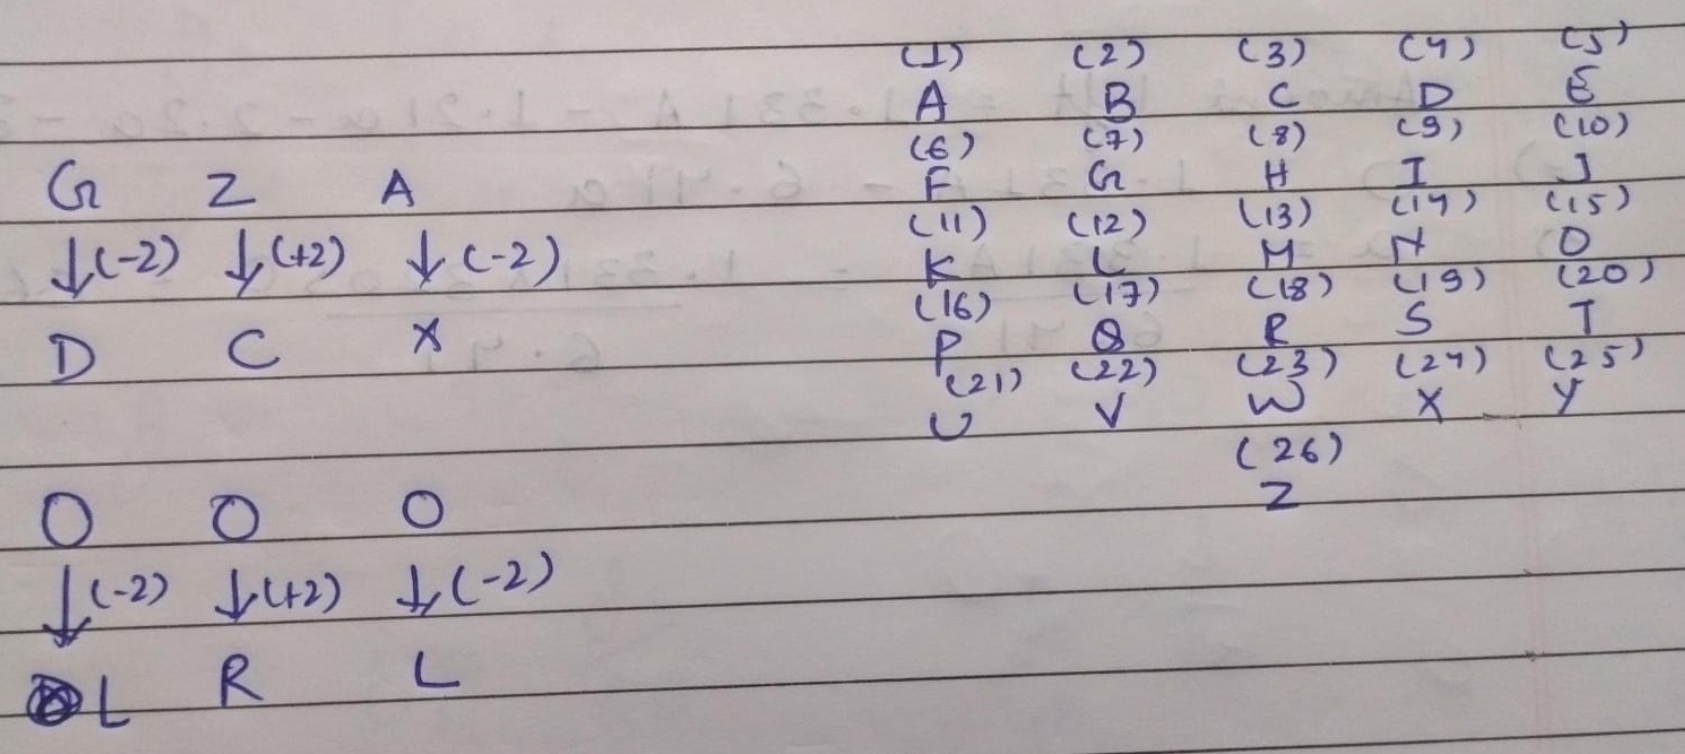 (1) (2) (3) (4) (5)
A B C D E
(6) (7) (8) (9) (10)
F G H I J
(11) (12) (13) (14) (15)
K L M N O
(16) (17) (18) (19) (20)
P Q R S T
(21) (22) (23) (24) (25)
U V W X Y
(26)
Z
G Z A
↓(-2) ↓(+2) ↓(-2)
D C X
O O O
↓(-2) ↓(+2) ↓(-2)
L R L